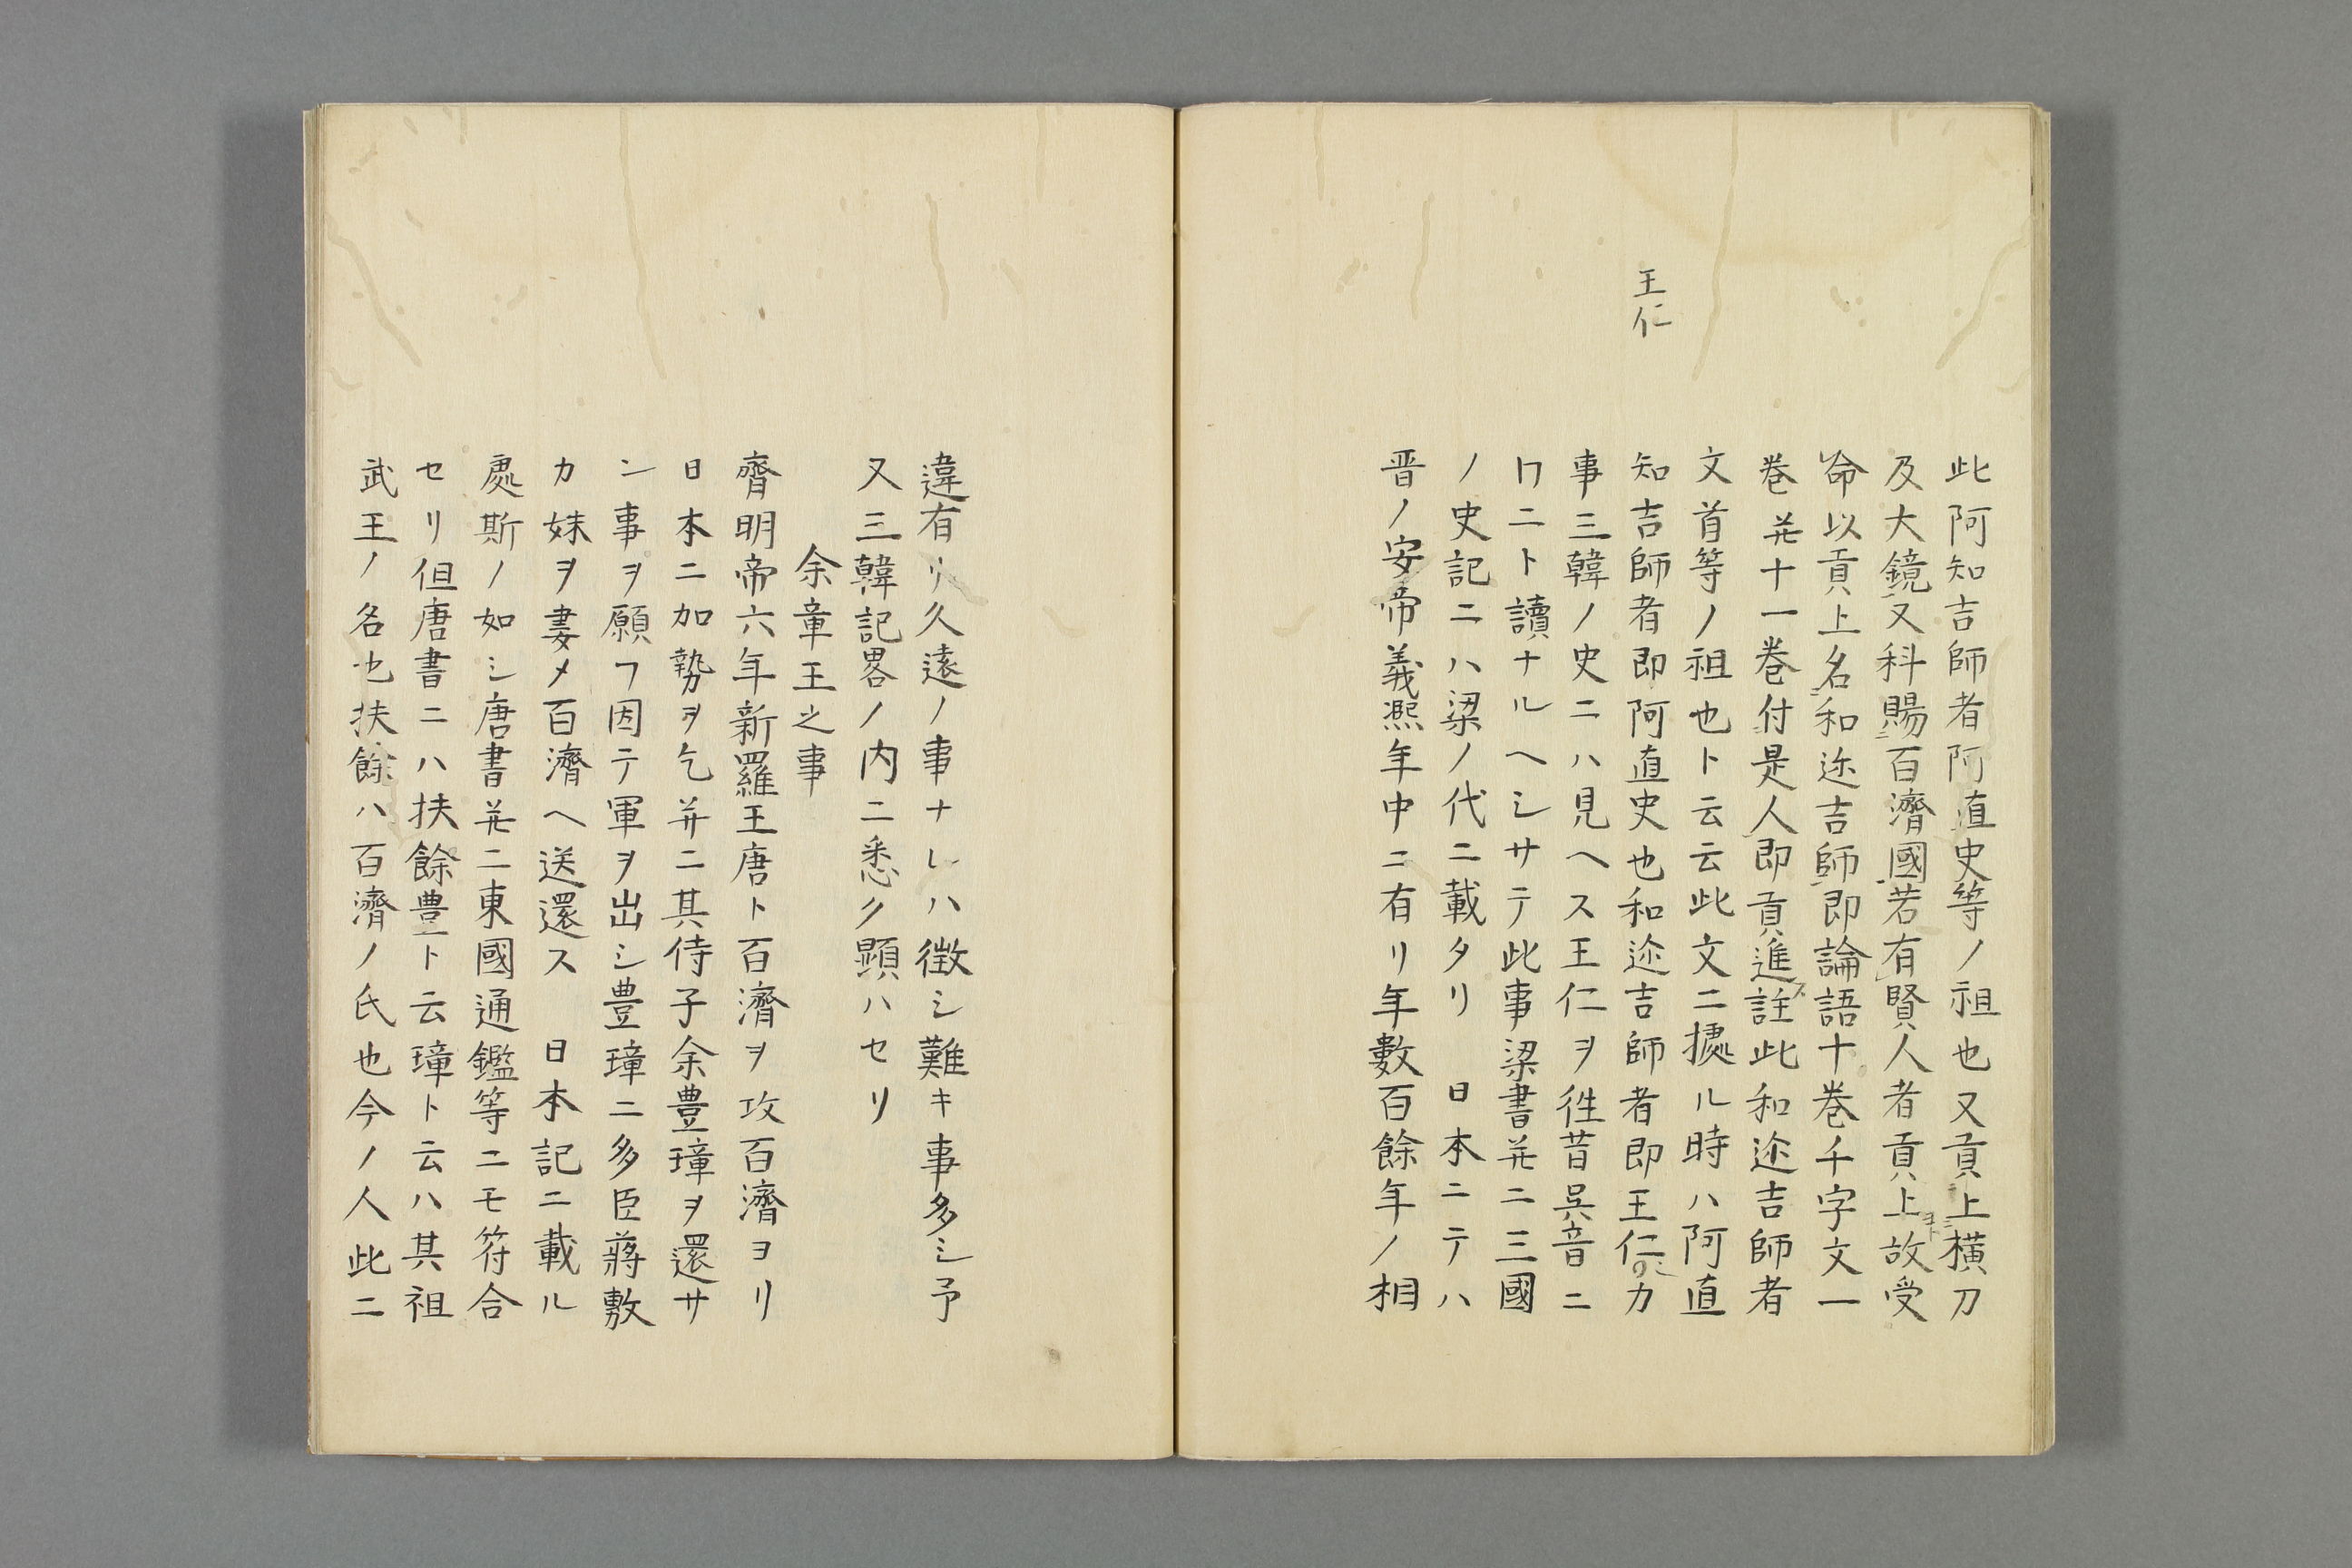 王仁
此阿知吉師者阿直史等ノ祖也又貢上横刀
及大鏡又科賜百濟國若有賢人者貢上故受
命以貢上名和迩吉師即論語十巻千字文一
巻并十一巻付是人即貢進註此和迩吉師者
文首等ノ祖也ト云云此文ニ據ル時ハ阿直
知吉師者即阿直史也和迩吉師者即王仁カ
事三韓ノ史ニハ見ヘス王仁ヲ徃昔呉音ニ
ワニト讀ナルヘシサテ此事梁書并ニ三國
ノ史記ニハ梁ノ代ニ載タリ 日本ニテハ
晋ノ安帝義凞年中ニ有リ年數百餘年ノ相
違有リ久遠ノ事ナレハ徴シ難キ事多シ予
又三韓記畧ノ内ニ悉ク顕ハセリ
余章王之事
齊明帝六年新羅王唐ト百濟ヲ攻百濟ヨリ
日本ニ加勢ヲ乞并ニ其侍子余豊璋ヲ還サ
ン事ヲ願フ因テ軍ヲ出シ豊璋ニ多臣蒋敷
カ妹ヲ妻メ百濟ヘ送還ス 日本記ニ載ル
處斯ノ如シ唐書并ニ東國通鑑等ニモ符合
セリ但唐書ニハ扶餘豊ト云璋ト云ハ其祖
武王ノ名也扶餘ハ百濟ノ氏也今ノ人此ニ